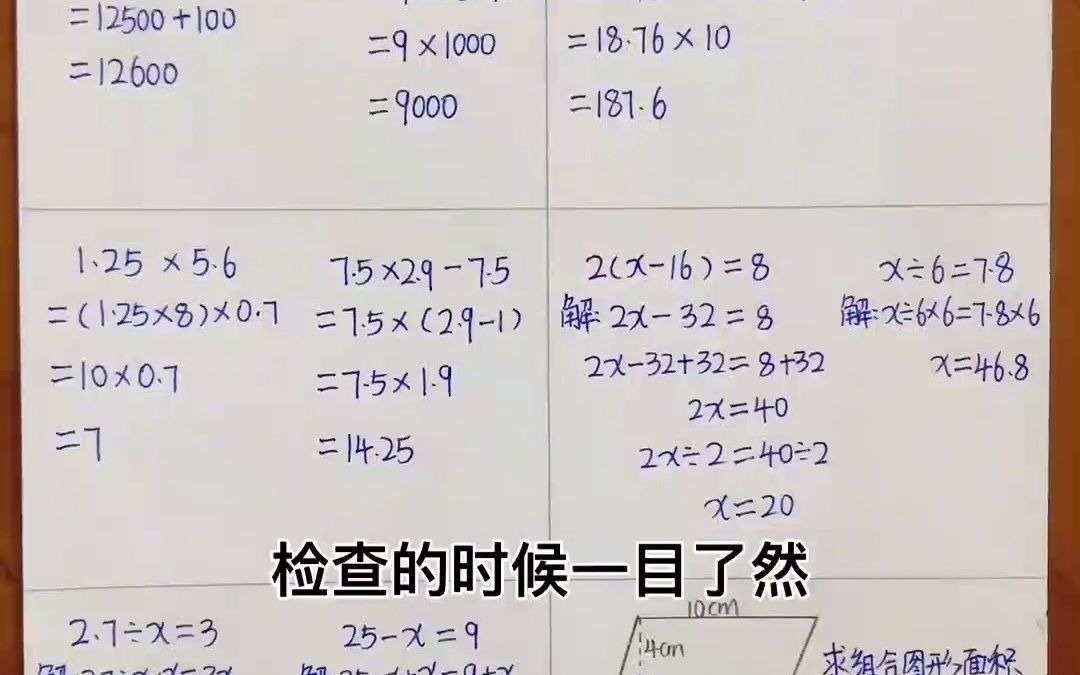 =12500+100
=12600
=9×1000
=9000
=18.76×10
=187.6
1.25×5.6
=(1.25×8)×0.7
=10×0.7
=7
7.5×2.9-7.5
=7.5×(2.9-1)
=7.5×1.9
=14.25
2(x-16)=8
解:2x-32=8
2x-32+32=8+32
2x=40
2x÷2=40÷2
x=20
x÷6=7.8
解:x÷6×6=7.8×6
x=46.8
检查的时候一目了然
2.7÷x=3
25-x=9
10cm
4cm
求组合图形面积